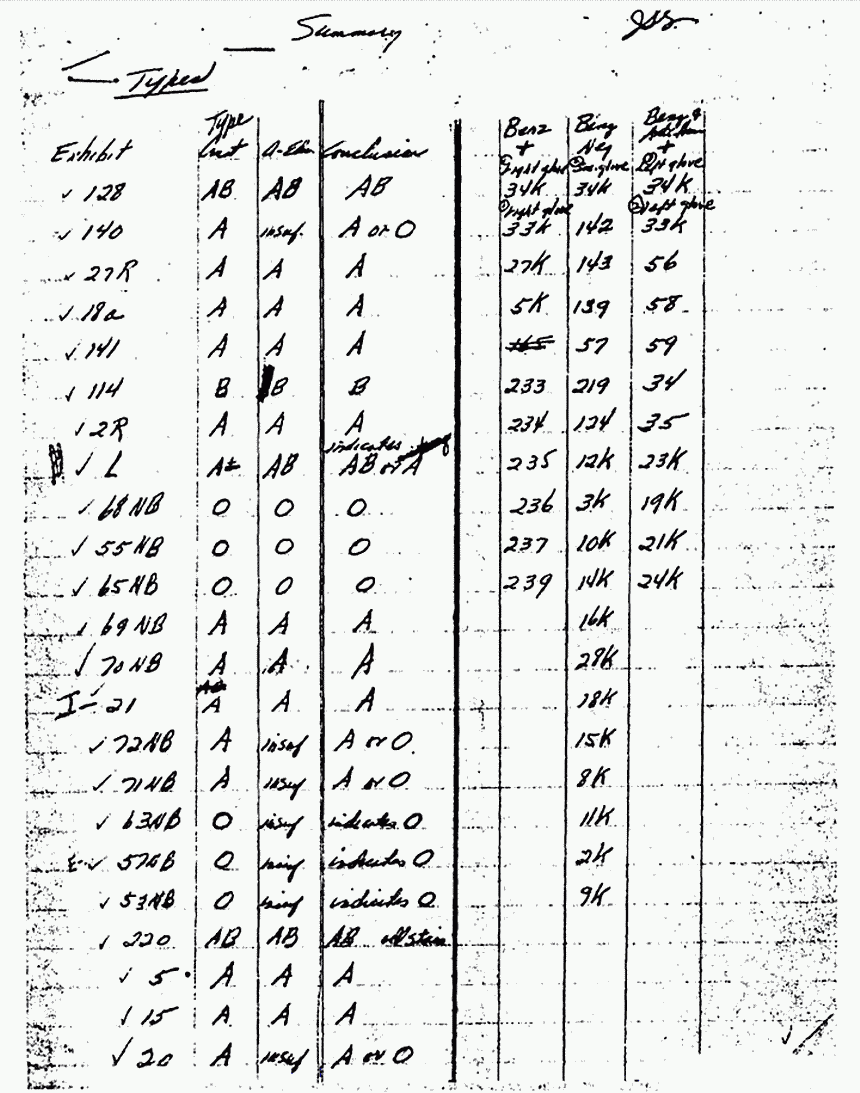 Summary
Types
Exhibit Type Crust a-Elu Conclusion Benz + Benz Neg Benz & Anti hum +
① right glove left glove
✓ 128 AB AB AB 34K 34K 34K
① right glove ② left glove
✓ 140 A insuf. A or O 33K 142 33K
✓ 27R A A A 27K 143 56
✓ 18a A A A 5K 139 58
✓ 141 A A A 165 57 59
✓ 114 B B B 233 219 34
✓ 2R A A A 234 124 35
indicates
✓ L A± AB AB or A 235 12K 23K
✓ 68NB O O O 236 3K 19K
✓ 55NB O O O 237 10K 21K
✓ 65NB O O O 239 14K 24K
✓ 69NB A A A 16K
✓ 70NB A A A 28K
I - 21 A A A 18K
✓ 72NB A insuf A or O 15K
✓ 71NB A insuf A or O 8K
✓ 63NB O insuf indicates O 11K
✓ 57NB O insuf indicates O 2K
✓ 53NB O insuf indicates O 9K
✓ 220 AB AB AB all stain
✓ 5 A A A
✓ 15 A A A
✓ 20 A insuf A or O